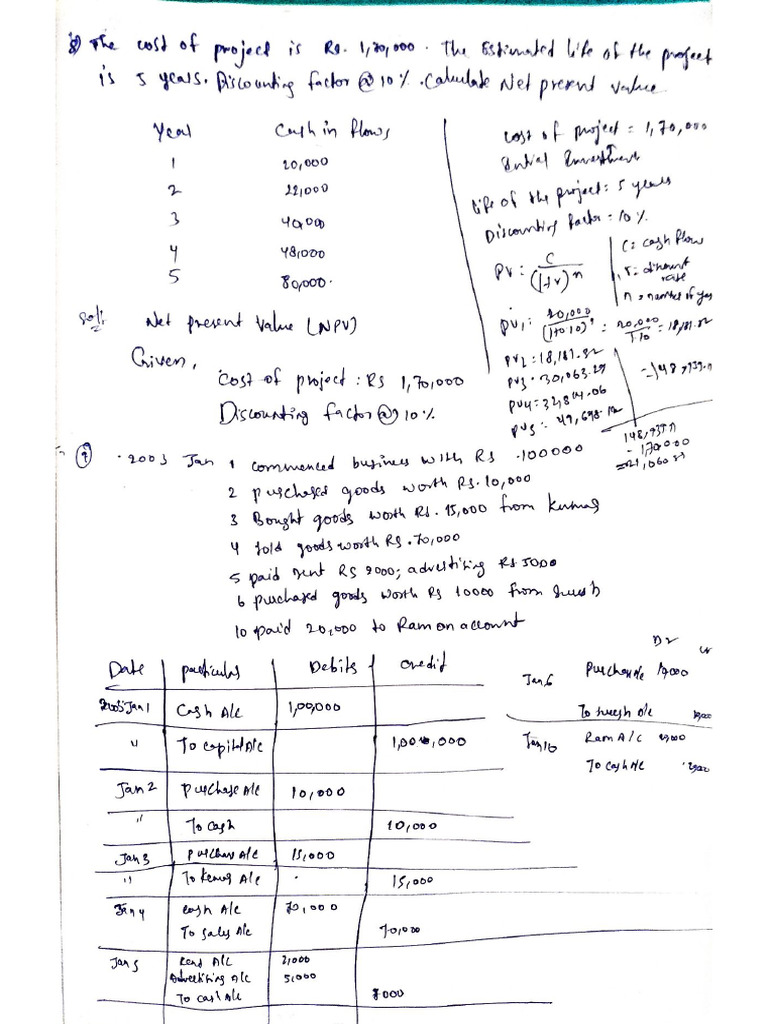 8) The cost of project is Rs. 1,70,000. The Estimated life of the project
is 5 years. Discounting factor @ 10%. Calculate Net present value
Year Cash in flows
1 20,000
2 22,000
3 40,000
4 48,000
5 80,000.
Sol: Net present value (NPV)
Given,
Cost of project : Rs 1,70,000
Discounting factor @ 10%
cost of project = 1,70,000
Initial Investment
life of the project = 5 years
Discounting factor = 10%
PV = C / (1+r)^n
C = cash flow
r = discount rate
n = number of yea
PV1 = 20,000 / (1+0.10)^1 = 20,000 / 1.10 = 18,181.82
PV2 = 18,181.82
PV3 = 30,063.29
PV4 = 32,814.06
PV5 = 49,698.12
= 148,939.11
148,939.11
- 170000
= 21,060.81
9) 2003 Jan 1 commenced business with Rs .100000
2 purchased goods worth Rs. 10,000
3 Bought goods worth Rs. 15,000 from Kumar
4 sold goods worth Rs. 70,000
5 paid rent Rs 2000; advertising Rs 5000
6 purchased goods worth Rs 10000 from suresh
10 paid 20,000 to Ram on account
Date Particulars Debits Credit
2003 Jan 1 Cash A/c 1,00,000
" To capital A/c 1,00,000
Jan 2 Purchase A/c 10,000
" To cash 10,000
Jan 3 Purchase A/c 15,000
" To Kumar A/c 15,000
Jan 4 cash A/c 70,000
To sales A/c 70,000
Jan 5 Rend A/c 2,000
Advertising A/c 5,000
To cash A/c
Dr Cr
Jan 6 Purchase A/c 10,000
To suresh A/c
Jan 10 Ram A/c 20,000
To cash A/c